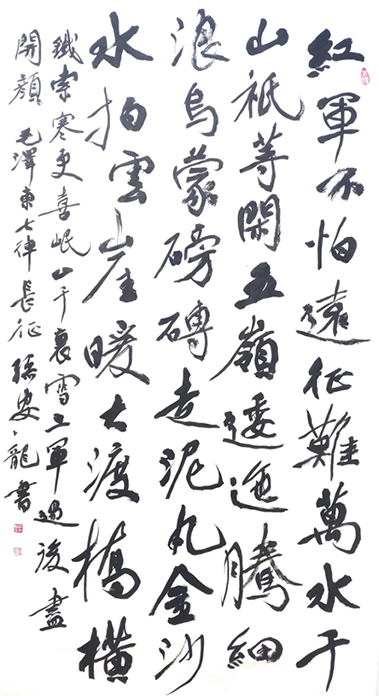 紅軍不怕遠征難萬水千
山祇等閑五嶺逶迤騰細
浪烏蒙磅礴走泥丸金沙
水拍雲崖暖大渡橋橫
鐵索寒更喜岷山千裏雪三軍過後盡
開顏 毛澤東七律長征 龍書